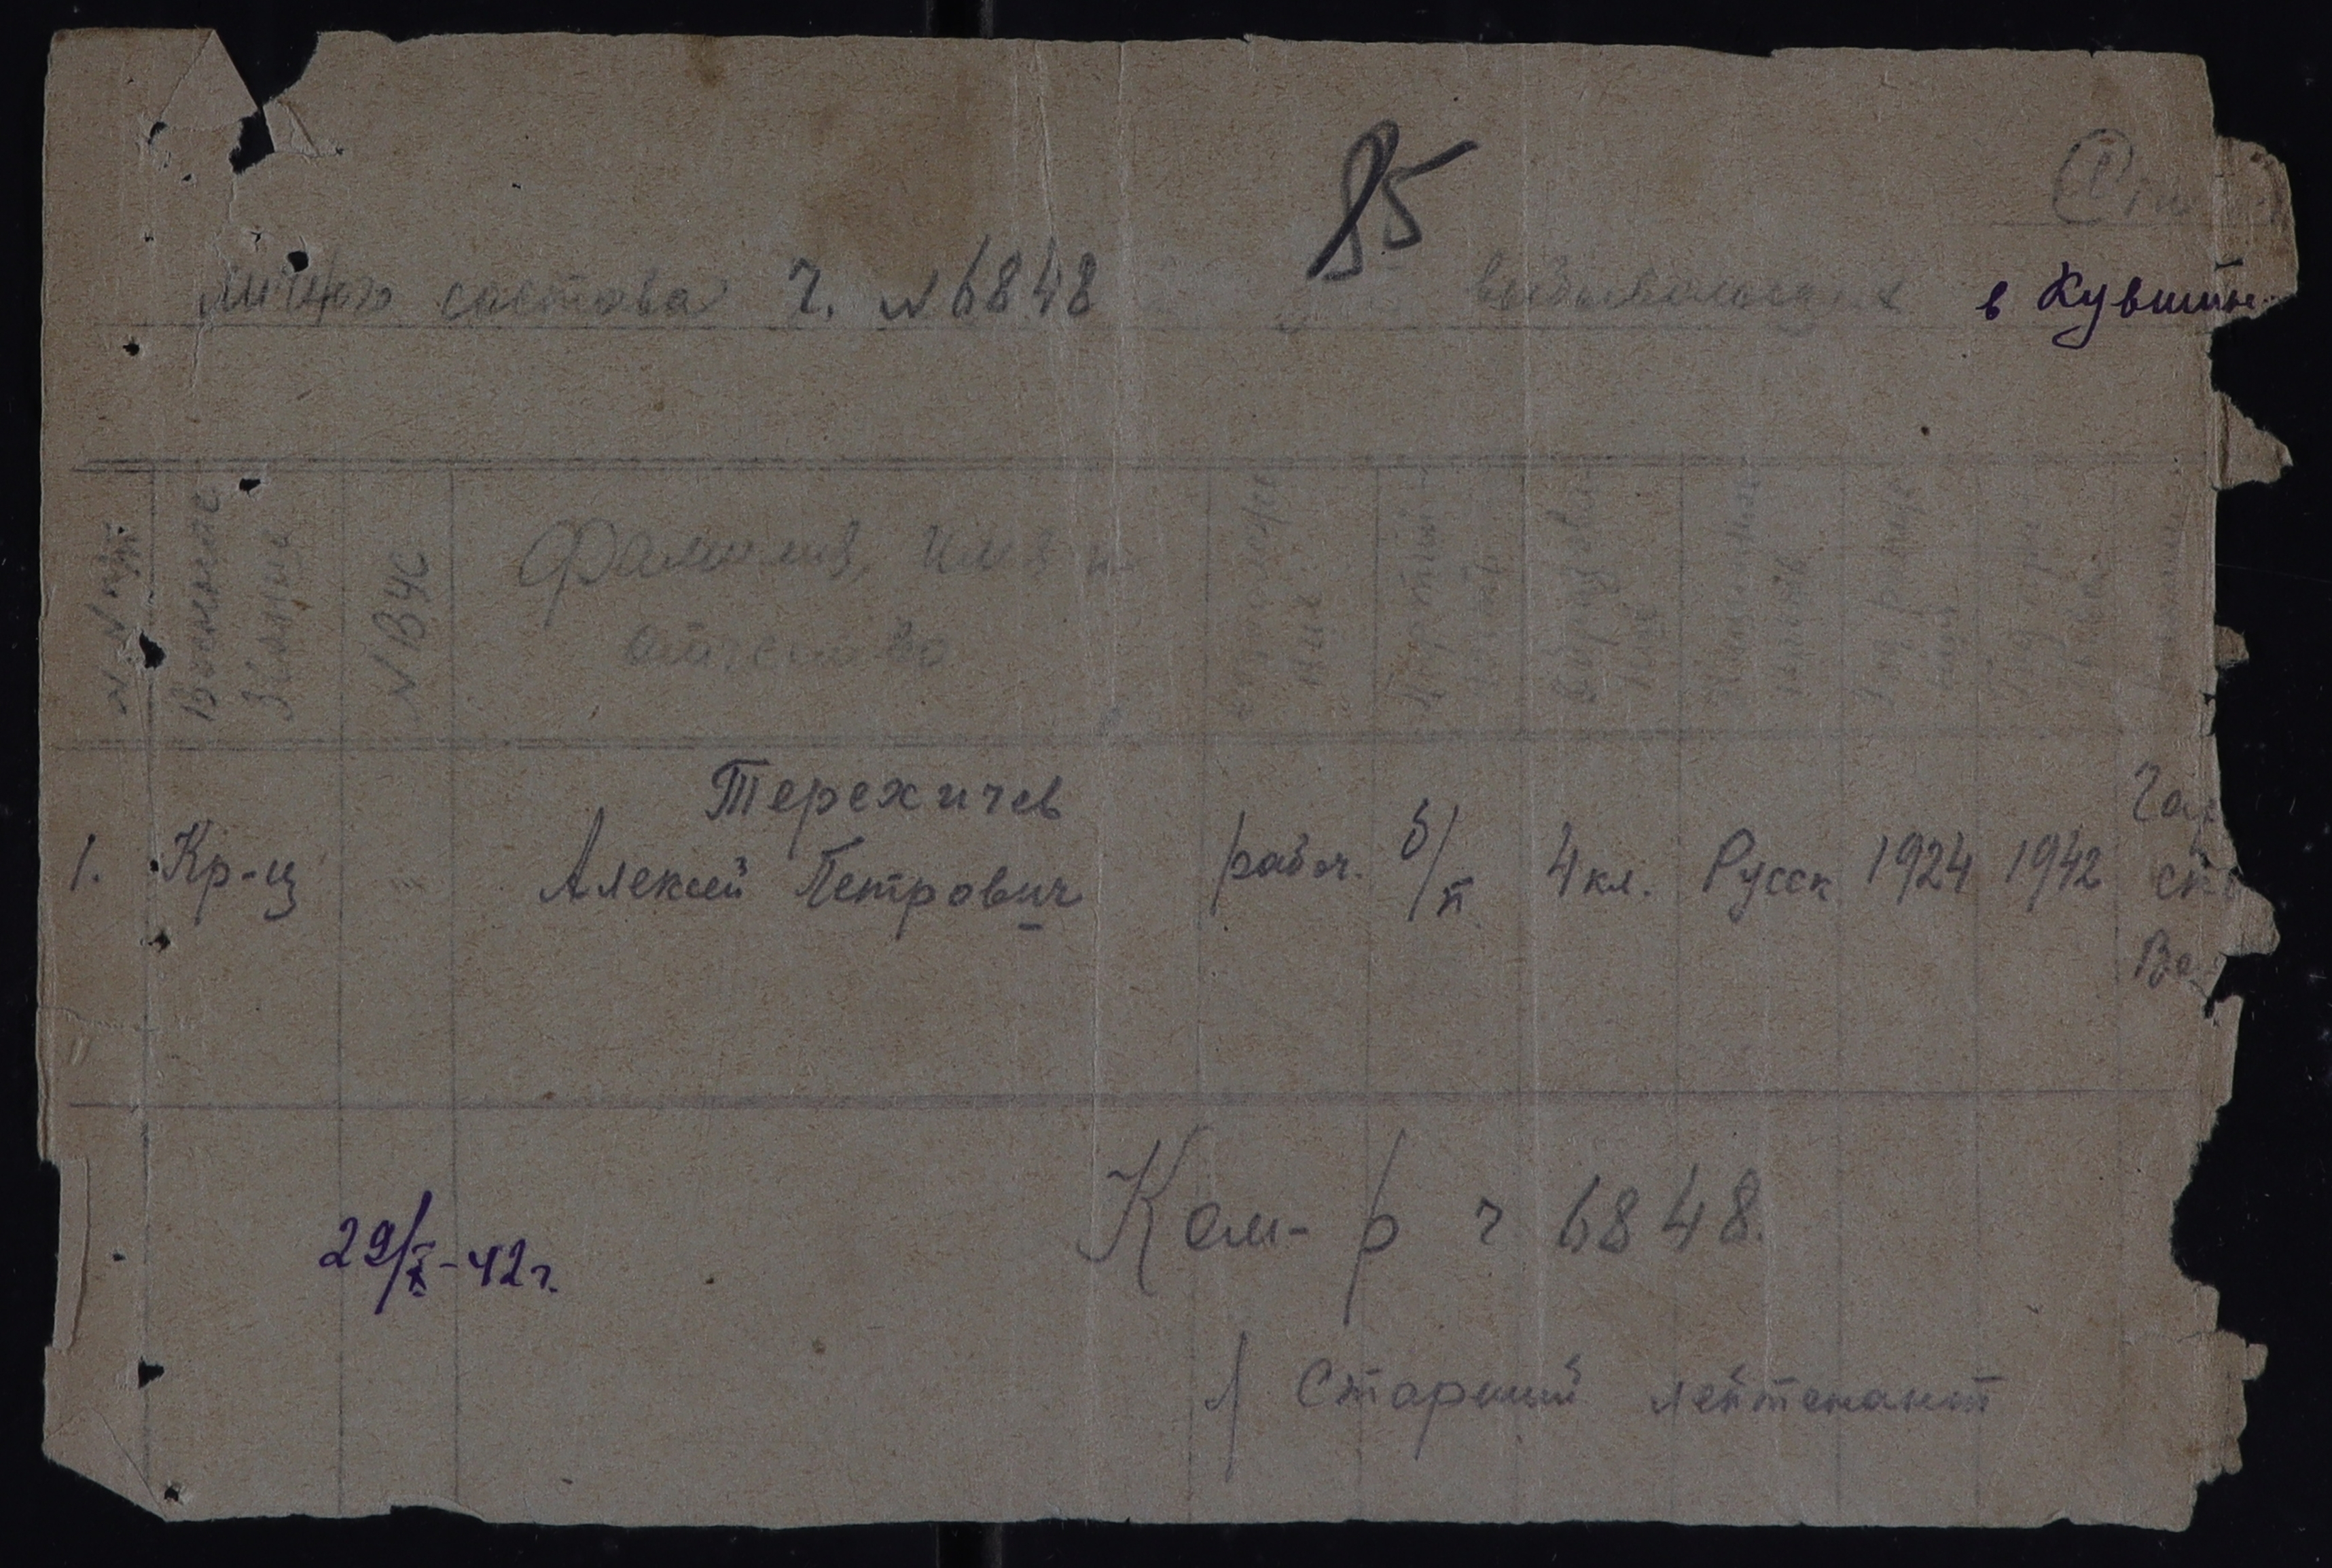 85
Спи
личного состава ч. № 6848 выбывающих в Кувшин
№ № п/п
Военное звание
№ ВУС
Фамилия, имя и
отчество
1. Кр-ц Терехичев
Алексей Петрович рабоч. б/п 4 кл. Русск 1924 1942
29/X-42 г.
Ком-р ч 6848.
Старший лейтенант